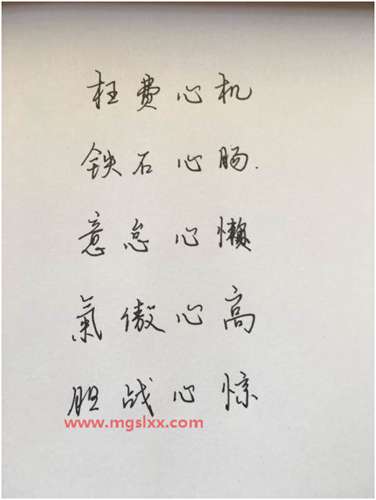 枉费心机
铁石心肠.
意怠心懒
氣傲心高
胆战心惊
www.mgslxx.com